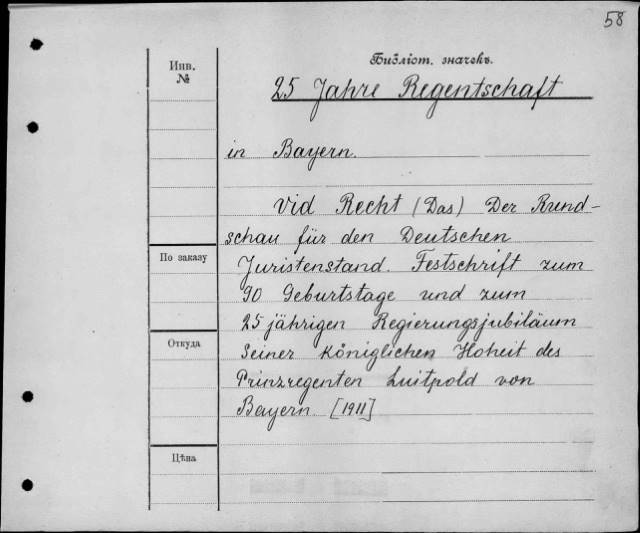 58
Инв.
№
Библіот. значекъ.
25 Jahre Regentschaft
in Bayern.
Vid Recht (Das) Der Rund-
schau für den Deutschen
По заказу
Juristenstand. Festschrift zum
90 Geburtstage und zum
25 jährigen Regierungsjubiläum
Откуда
Seiner königlichen Hoheit des
Prinzregenten Luitpold von
Bayern [1911]
Цѣна